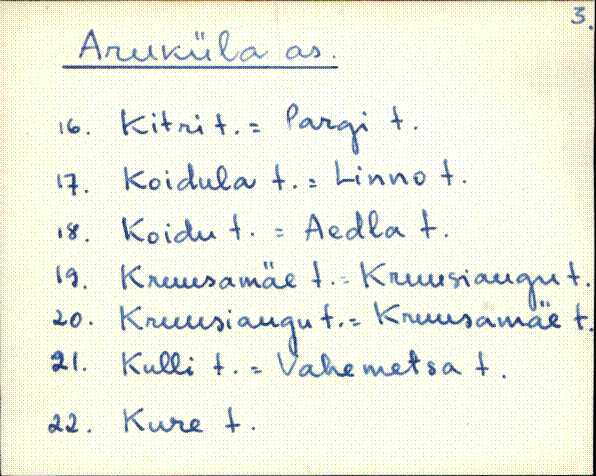 3.
Aruküla as.
16. Kitri t. = Pargi t.
17. Koidula t. = Linno t.
18. Koidu t. = Aedla t.
19. Kruusamäe t. = Kruusiaugu t.
20. Kruusiaugu t. = Kruusamäe t.
21. Kulli t. = Vahemetsa t.
22. Kure t.